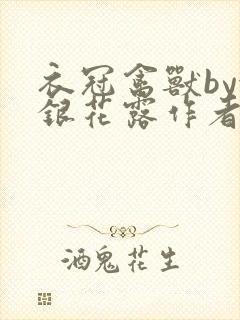 衣冠禽獸by
銀花露作者
酒鬼花生